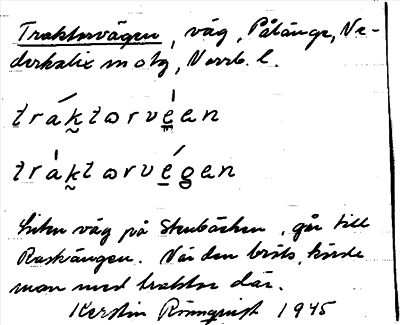 Traktorvägen, väg, Pålänge, Ne-
derkalix sn o tg, Norrb. l.
tráktorvèen
tràktorvégen
Liten väg på Stenbäcken, går till
Raskängen. När den bröts, körde
man med traktor där.
Kerstin Rönnqvist 1945